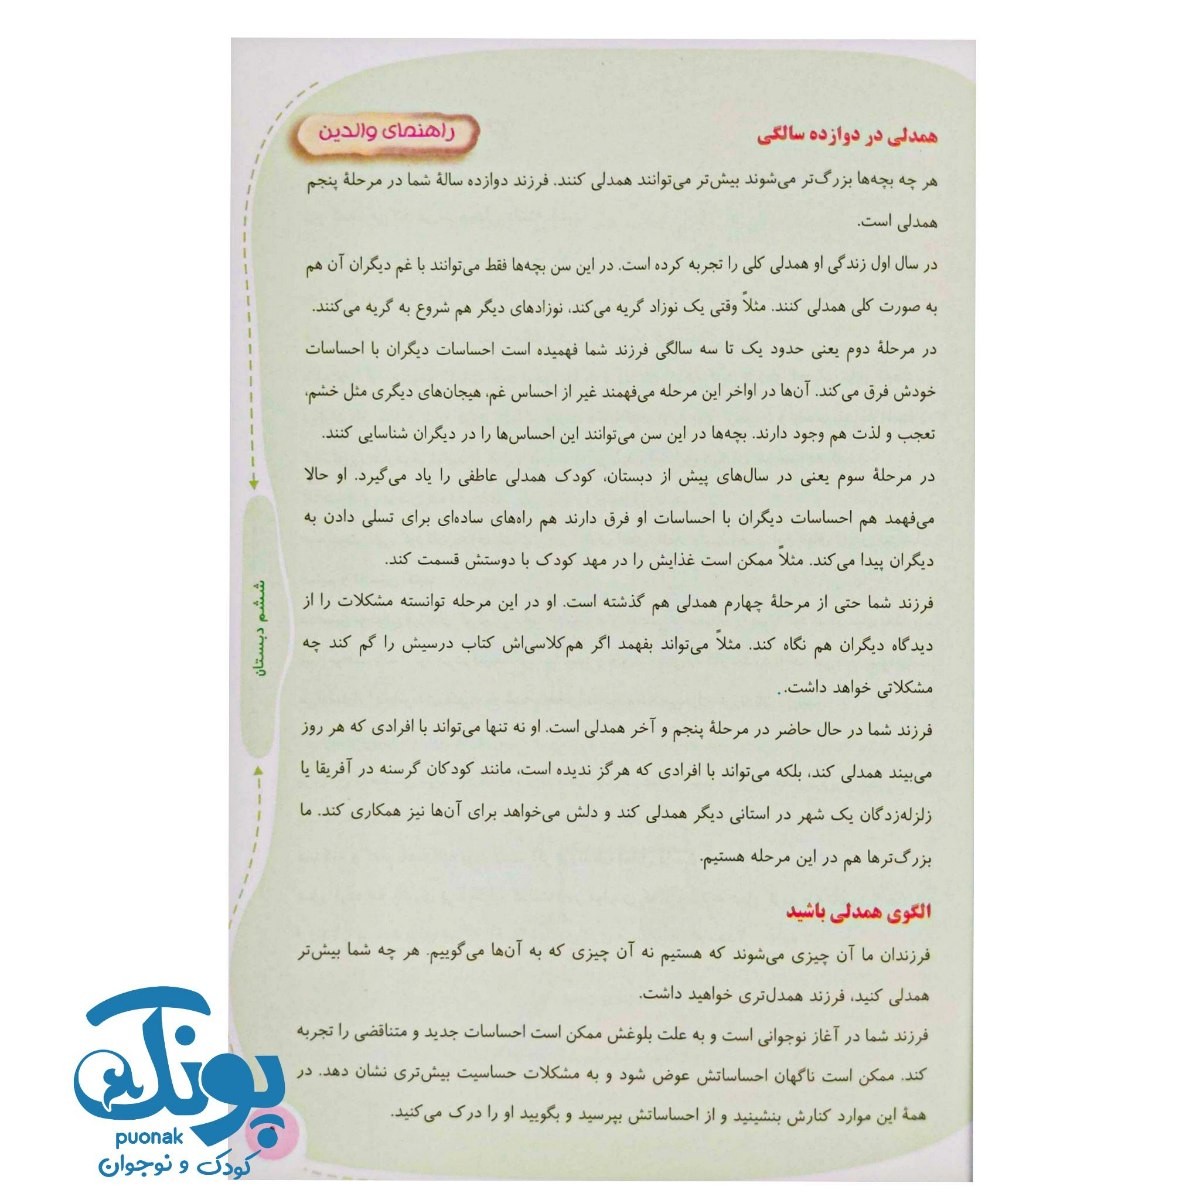 راهنمای والدین
همدلی در دوازده سالگی
هر چه بچه‌ها بزرگ‌تر می‌شوند بیش‌تر می‌توانند همدلی کنند. فرزند دوازده سالهٔ شما در مرحلهٔ پنجم
همدلی است.
در سال اول زندگی او همدلی کلی را تجربه کرده است. در این سن بچه‌ها فقط می‌توانند با غم دیگران آن هم
به صورت کلی همدلی کنند. مثلاً وقتی یک نوزاد گریه می‌کند، نوزادهای دیگر هم شروع به گریه می‌کنند.
در مرحلهٔ دوم یعنی حدود یک تا سه سالگی فرزند شما فهمیده است احساسات دیگران با احساسات
خودش فرق می‌کند. آن‌ها در اواخر این مرحله می‌فهمند غیر از احساس غم، هیجان‌های دیگری مثل خشم،
تعجب و لذت هم وجود دارند. بچه‌ها در این سن می‌توانند این احساس‌ها را در دیگران شناسایی کنند.
در مرحلهٔ سوم یعنی در سال‌های پیش از دبستان، کودک همدلی عاطفی را یاد می‌گیرد. او حالا
می‌فهمد هم احساسات دیگران با احساسات او فرق دارند هم راه‌های ساده‌ای برای تسلی دادن به
دیگران پیدا می‌کند. مثلاً ممکن است غذایش را در مهد کودک با دوستش قسمت کند.
فرزند شما حتی از مرحلهٔ چهارم همدلی هم گذشته است. او در این مرحله توانسته مشکلات را از
دیدگاه دیگران هم نگاه کند. مثلاً می‌تواند بفهمد اگر هم‌کلاسی‌اش کتاب درسیش را گم کند چه
مشکلاتی خواهد داشت.
فرزند شما در حال حاضر در مرحلهٔ پنجم و آخر همدلی است. او نه تنها می‌تواند با افرادی که هر روز
می‌بیند همدلی کند، بلکه می‌تواند با افرادی که هرگز ندیده است، مانند کودکان گرسنه در آفریقا یا
زلزله‌زدگان یک شهر در استانی دیگر همدلی کند و دلش می‌خواهد برای آن‌ها نیز همکاری کند. ما
بزرگ‌ترها هم در این مرحله هستیم.
الگوی همدلی باشید
فرزندان ما آن چیزی می‌شوند که هستیم نه آن چیزی که به آن‌ها می‌گوییم. هر چه شما بیش‌تر
همدلی کنید، فرزند همدل‌تری خواهید داشت.
فرزند شما در آغاز نوجوانی است و به علت بلوغش ممکن است احساسات جدید و متناقضی را تجربه
کند. ممکن است ناگهان احساساتش عوض شود و به مشکلات حساسیت بیش‌تری نشان دهد. در
همهٔ این موارد کنارش بنشینید و از احساساتش بپرسید و بگویید او را درک می‌کنید.
ششم دبستان
پونک
puonak
کودک و نوجوان